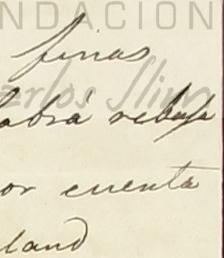 FUNDACION
finas
Carlos Slim
abrá rebaja
or cuenta
land